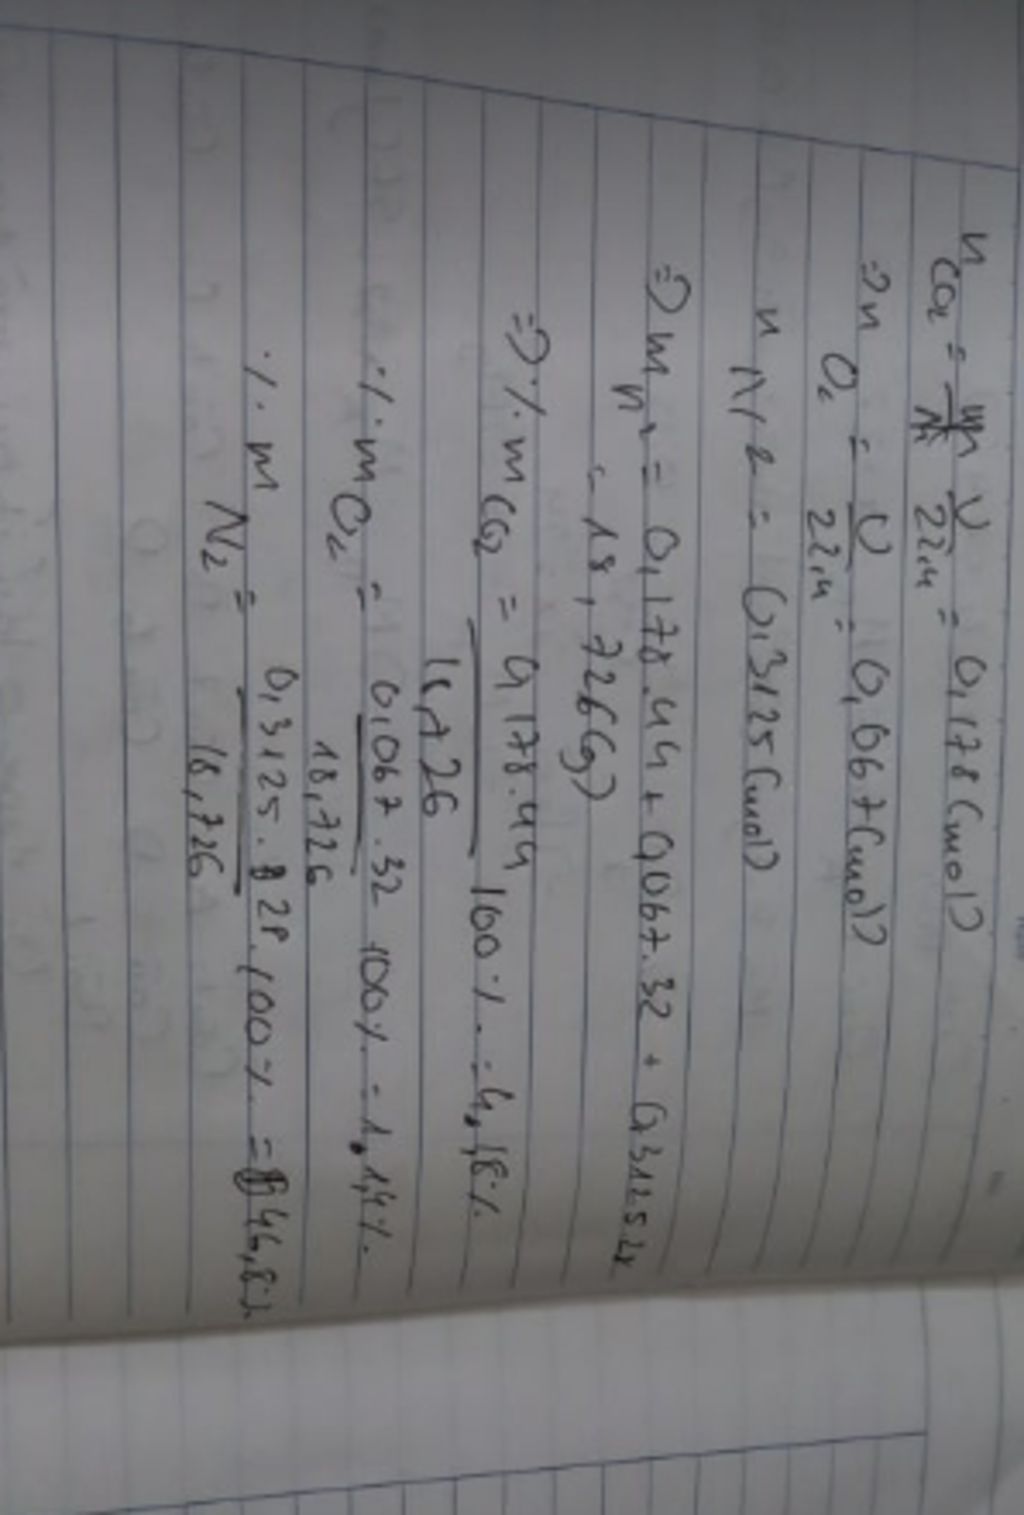 n CO₂ = m/M V/22,4 = 0,178 (mol)
=> n O₂ = V/22,4 = 0,067 (mol)
n N₂ = 0,3125 (mol)
=> m = 0,178.44 + 0,067.32 + 0,3125.28
= 18,726 (g)
=> % m CO₂ = 0,178.44 / 18,726 100% = 4,18%
% m O₂ = 0,067.32 / 18,726 100% = 1,14%
% m N₂ = 0,3125.28 / 18,726 .100% = 46,8%